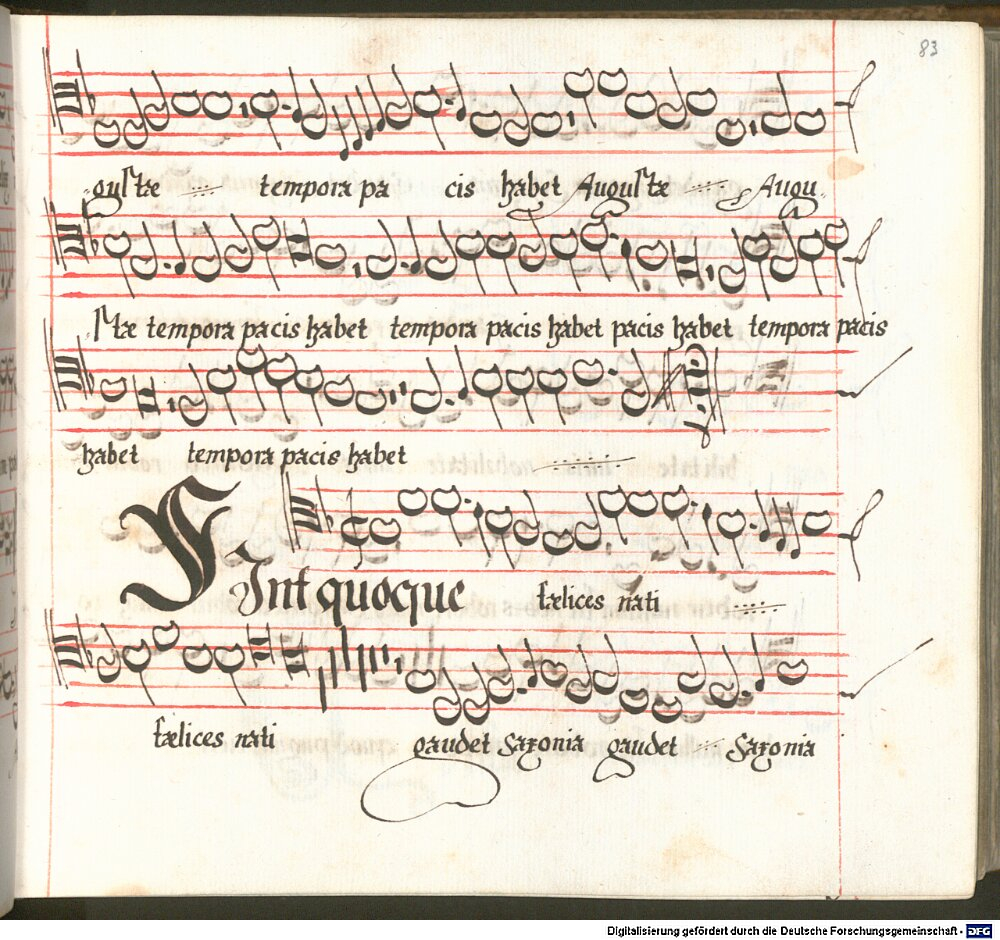 83
guſtæ tempora pa cis habet Auguſtæ Augu
ſtæ tempora pacis habet tempora pacis habet pacis habet tempora pacis
habet tempora pacis habet
SInt quoque fælices nati
fælices nati gaudet Saxonia gaudet Saxonia
Digitalisierung gefördert durch die Deutsche Forschungsgemeinschaft - DFG